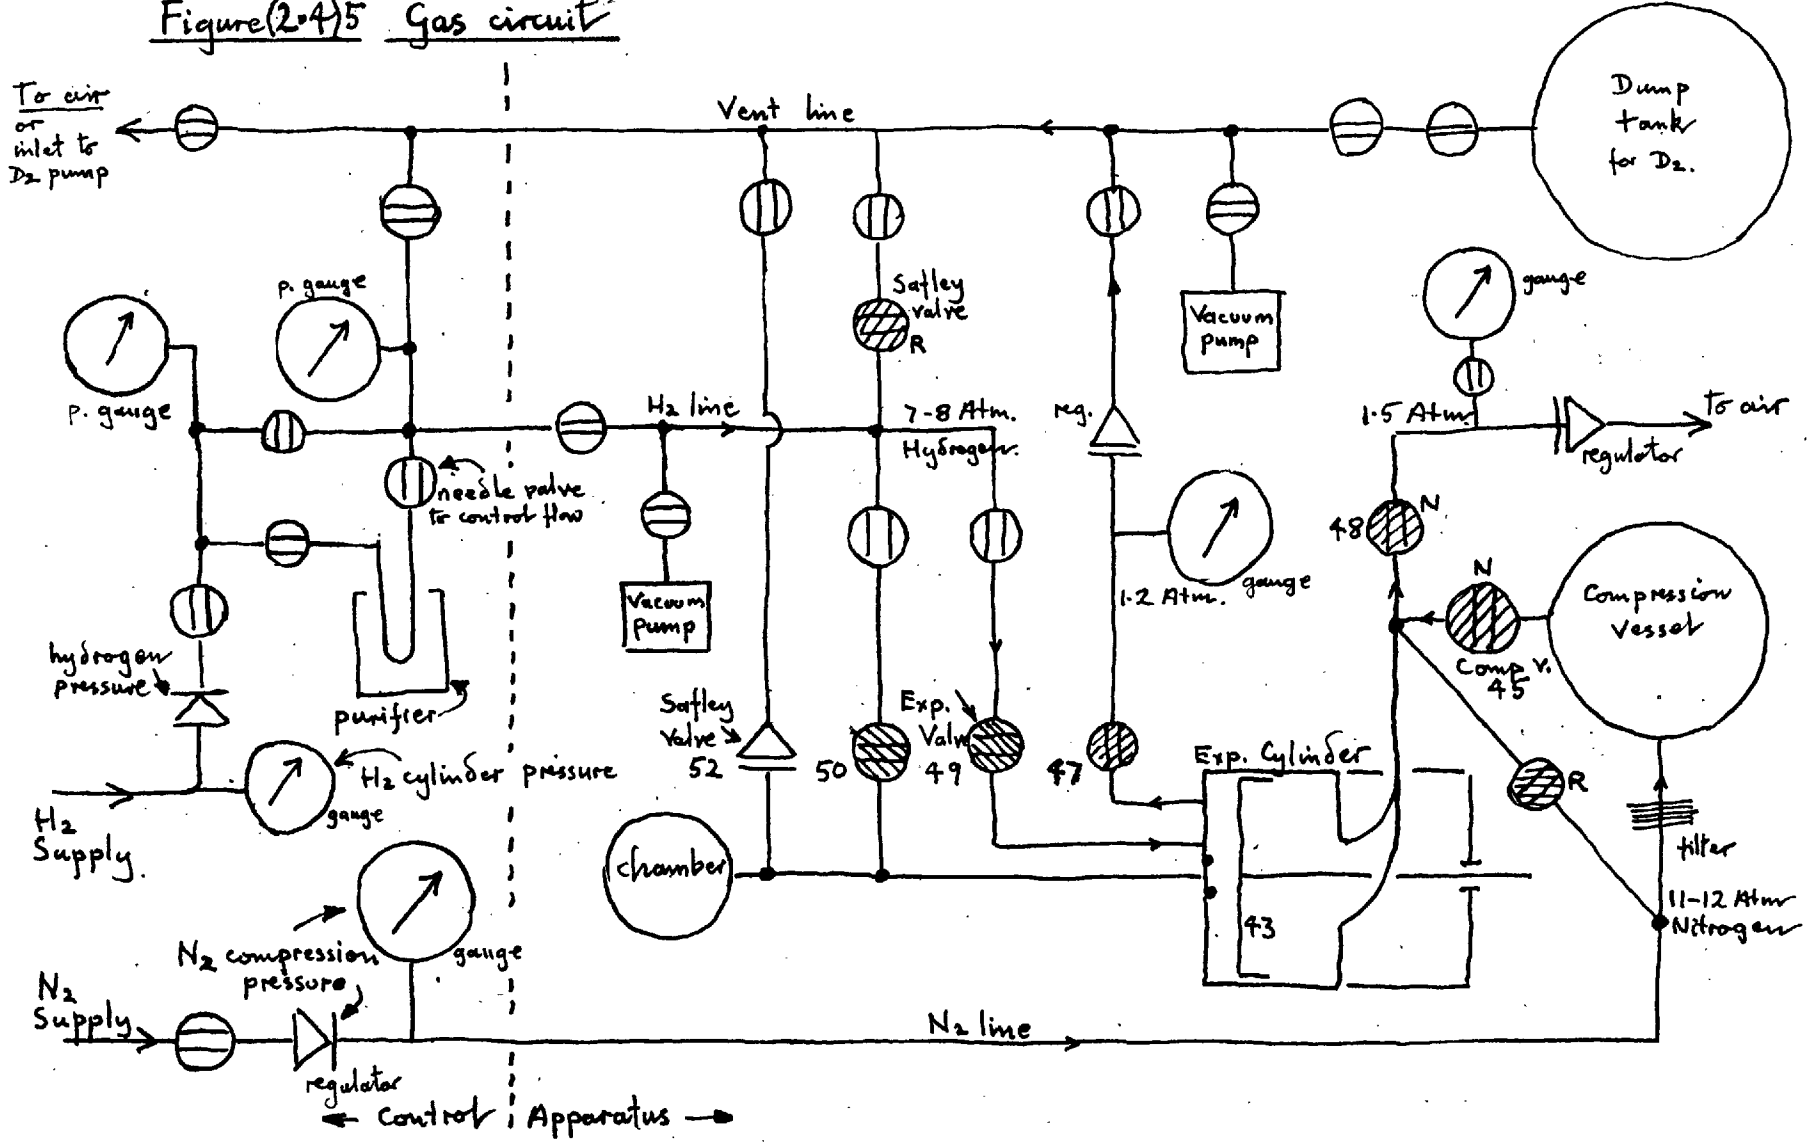 Figure(2.4)5 Gas circuit
To air
or
inlet to
D2 pump
Vent line
Dump
tank
for D2.
p. gauge
p. gauge
Saftey
valve
R
Vacuum
pump
gauge
H2 line
7-8 Atm.
Hydrogen.
reg.
1.5 Atm
To air
regulator
needle valve
to control flow
48
N
gauge
1.2 Atm.
N
Compression
Vessel
Comp V.
45
Vacuum
pump
hydrogen
pressure
purifier
Saftey
Valve
52
50
Exp.
Valve
49
47
Exp. Cylinder
R
H2 cylinder pressure
gauge
H2
Supply.
filter
chamber
43
11-12 Atm
Nitrogen
N2 compression
pressure
gauge
N2
Supply
regulator
N2 line
← Control
Apparatus →